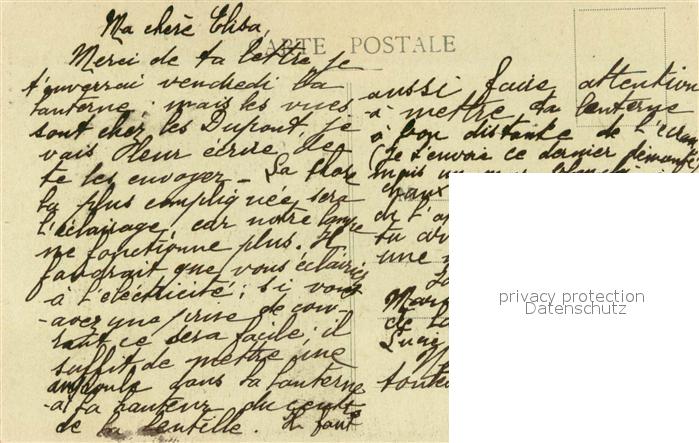 Ma chère Elisa,
CARTE POSTALE
Merci de ta lettre, je
t'enverrai vendredi la
lanterne; mais les vues
sont chez les Dupont, je
vais leur écrire de
te les envoyer - La chose
la plus compliquée sera
l'éclairage, car notre lampe
ne fonctionne plus. Il
faudrait que vous éclairiez
à l'électricité; si vous
avez une prise de cou-
rant ce sera facile; il
suffit de mettre une
ampoule dans la lanterne
à la hauteur du centre
de la lentille. Il faut
aussi faire attention
à mettre la lanterne
à bon distante de l'écran
(Je t'envoie ce dernier démonté)
mais un
chaux
de l'a
tu
une
Mar
de
toute
privacy protection
Datenschutz